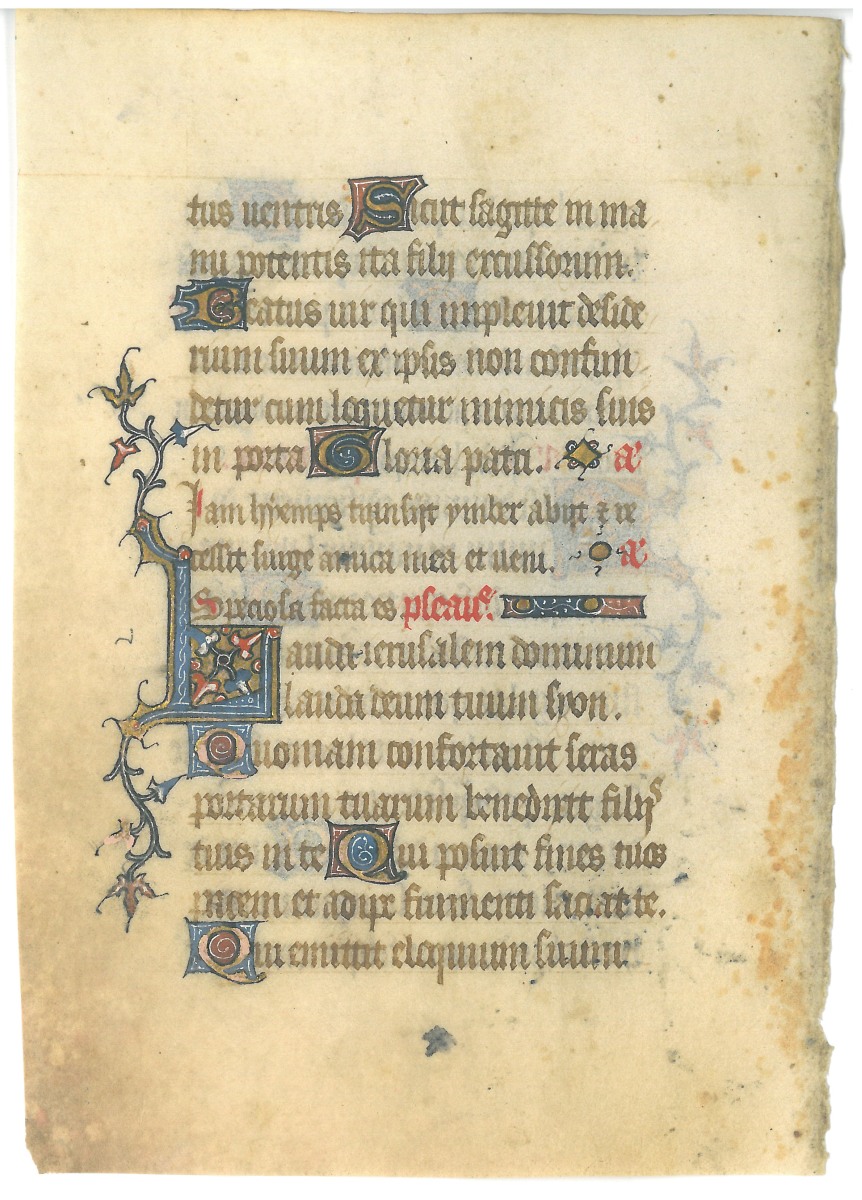 tus uentris Sicut sagitte in ma
nu potentis ita filij excussorum.
Beatus uir qui impleuit deside
rium suum ex ipsis non confun
detur cum loquetur inimicis suis
in porta Gloria patri. a͂
Iam hyemps transijt ymber abijt ⁊ re
cessit surge amica mea et ueni. a͂
Speciosa facta es pseaue.
Lauda ierusalem dominum
lauda deum tuum syon.
Quoniam confortauit seras
portarum tuarum benedixit filijs
tuis in te Qui posuit fines tuos
pacem et adipe frumenti saciat te.
Qui emittit eloquium suum